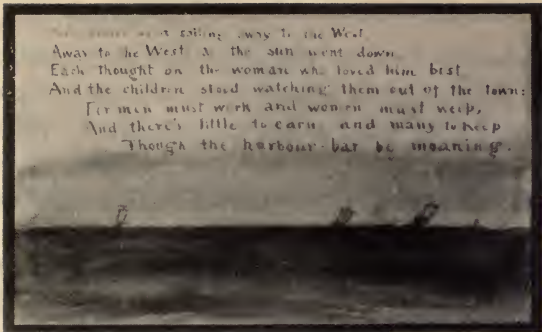 sailing away to the West
Away to he West as the sun went down
Each thought on the woman who loved him best
And the children stood watching them out of the town:
For men must work and women must weep,
And there's little to earn and many to keep
Though the harbour-bar be moaning.